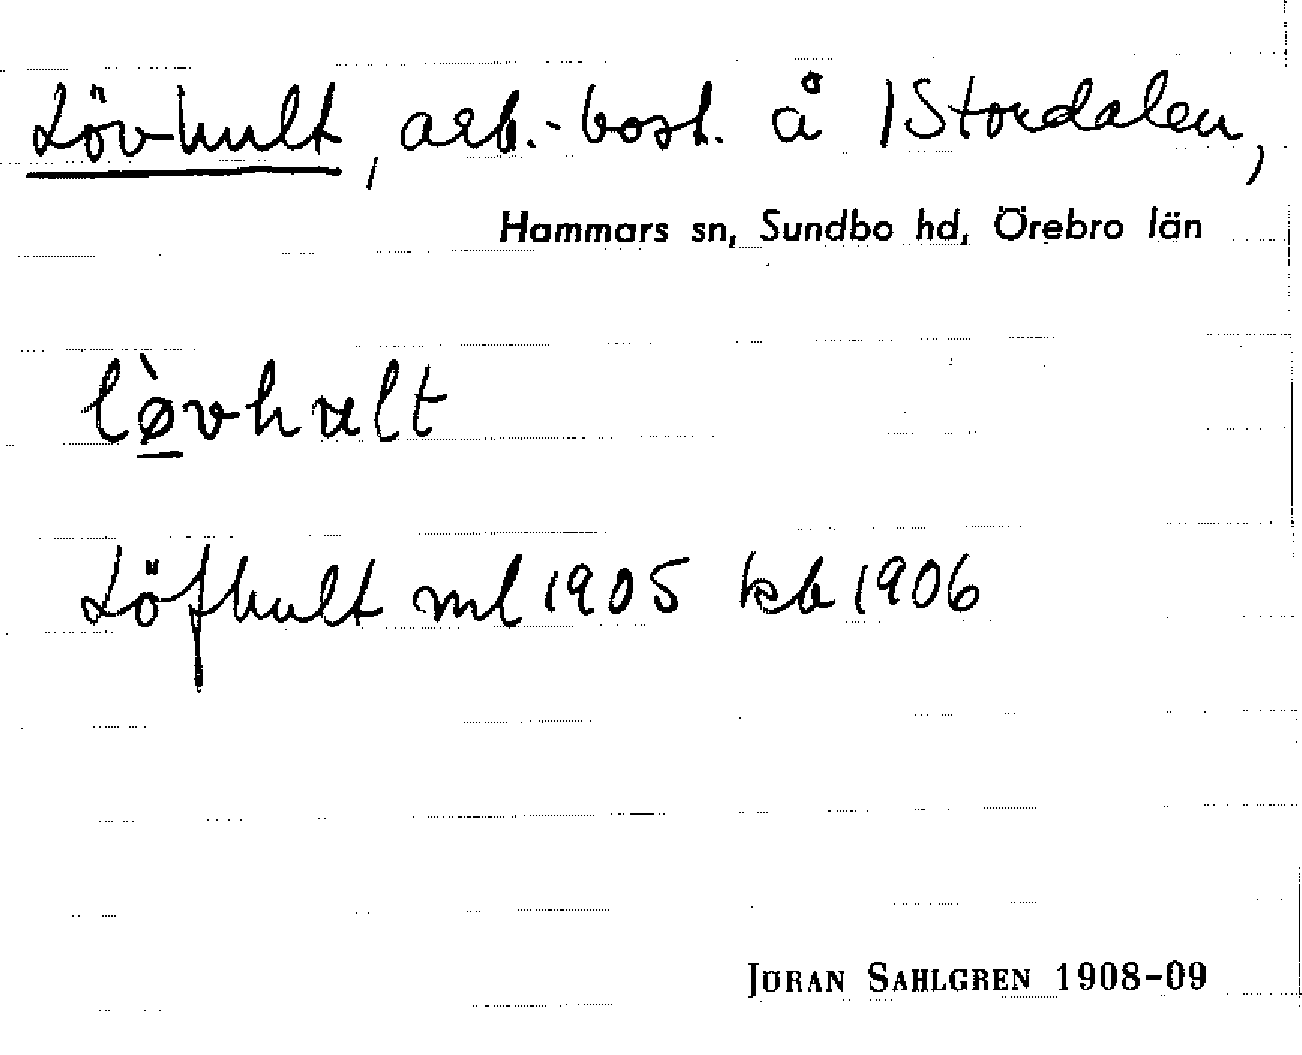 Lövhult, arb.-bost. å 1 Stordalen,
Hammars sn, Sundbo hd, Örebro län
lø̱̀vhult
Löfhult ml 1905 kb 1906
JÖRAN SAHLGREN 1908-09